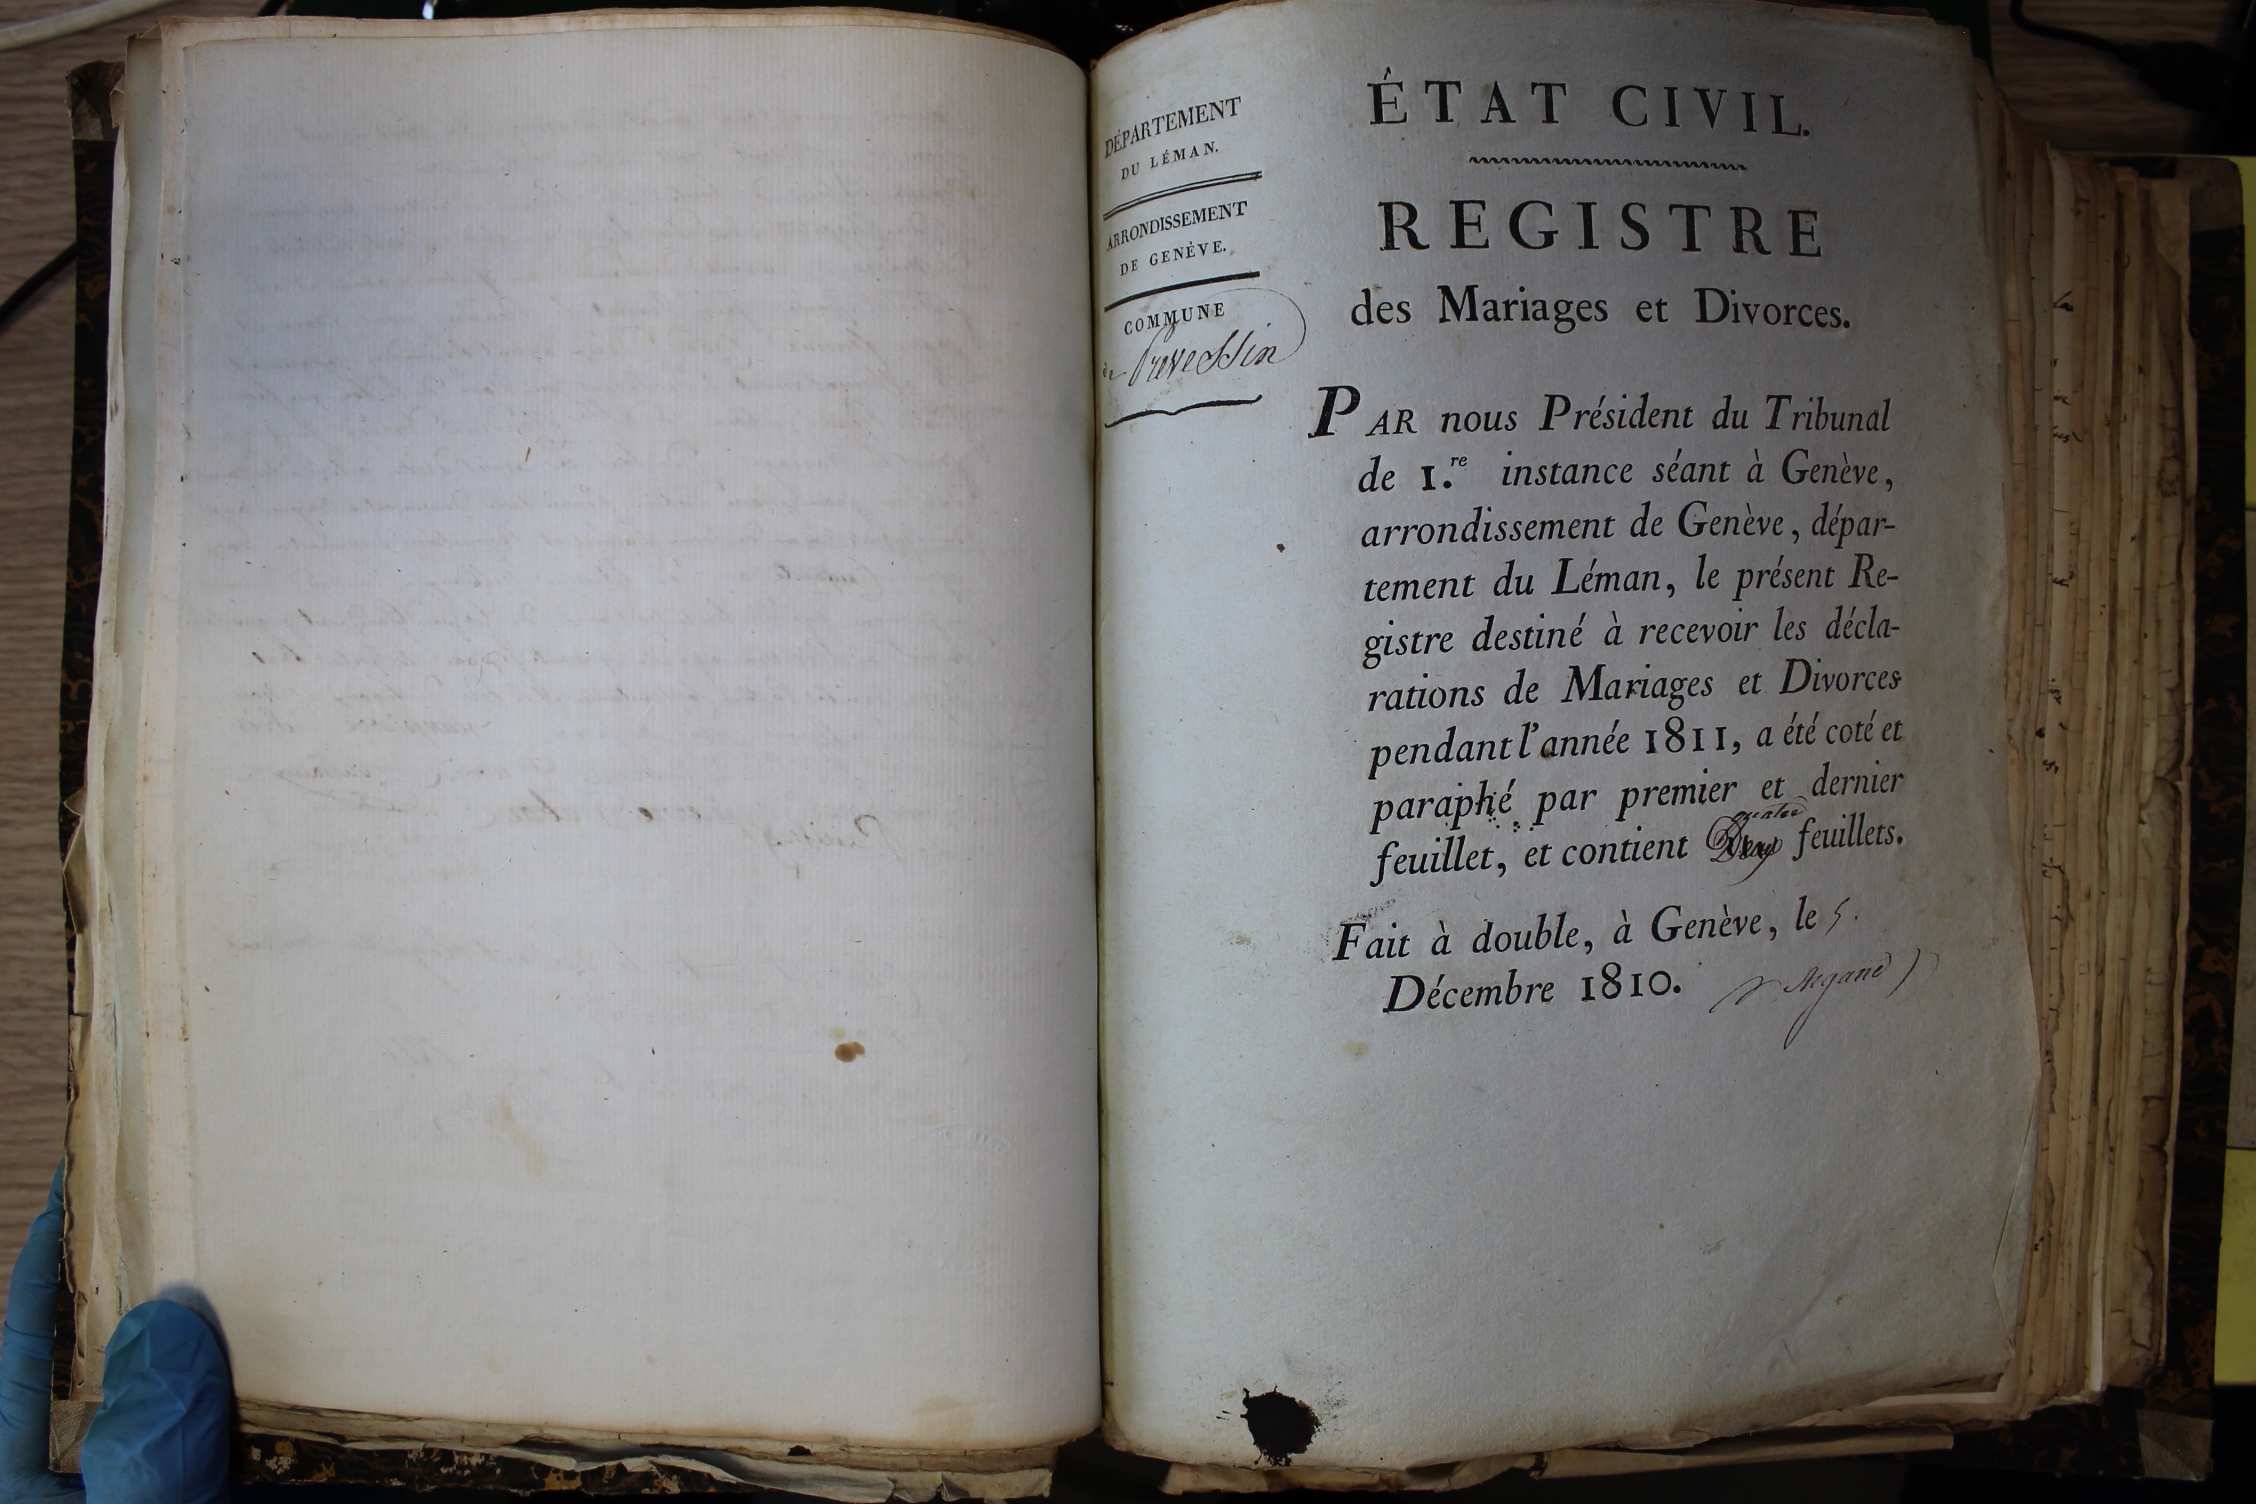 DÉPARTEMENT
DU LÉMAN.
ARRONDISSEMENT
DE GENÈVE.
COMMUNE
de Prevessin
ÉTAT CIVIL.
REGISTRE
des Mariages et Divorces.
PAR nous Président du Tribunal
de 1.re instance séant à Genève,
arrondissement de Genève, dépar-
tement du Léman, le présent Re-
gistre destiné à recevoir les décla-
rations de Mariages et Divorces
pendant l'année 1811, a été coté et
paraphé par premier et dernier
quatre
feuillet, et contient Deux feuillets.
Fait à double, à Genève, le 5.
Décembre 1810. Argand